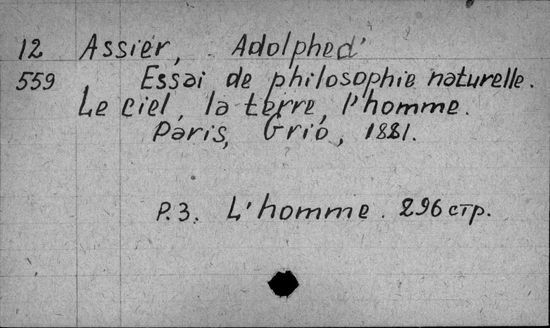 12 Assier, Adolphe d'
559 Essai de philosophie naturelle.
Le ciel, la terre, l'homme.
Paris, Grio, 1881.
P.3. L'homme. 296 стр.